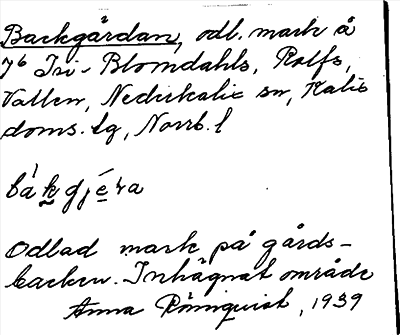 Backgårdan, odl. mark å
7⁶ Isi- Blomdahls, Rolfs,
Vallen, Nederkalix sn, Kalix
doms.lg, Norrb.l
båkgjéra
Odlad mark på gårds-
backen. Inhägnat område
Anna Rönnquist, 1939